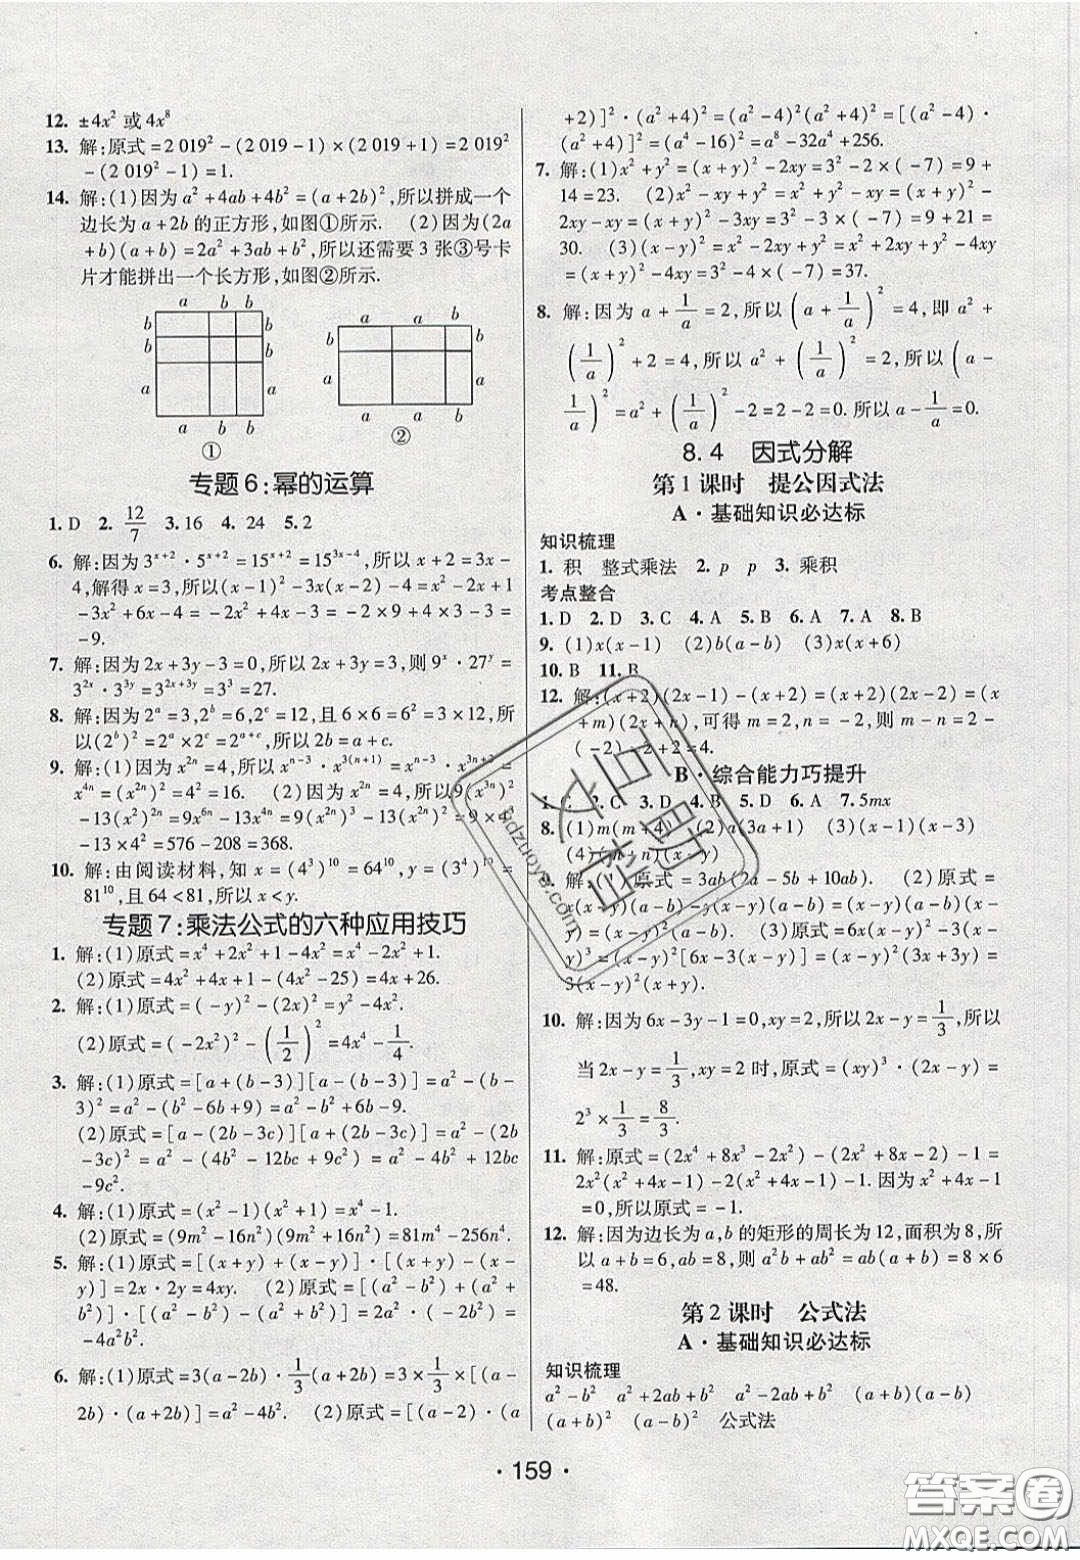 12. ±4x² 或 4x⁸
13. 解:原式=2 019²-(2 019-1)×(2 019+1)=2 019²
-(2 019²-1)=1.
14. 解:(1)因为 a²+4ab+4b²=(a+2b)²,所以拼成一个
边长为 a+2b 的正方形,如图①所示. (2)因为(2a
+b)(a+b)=2a²+3ab+b²,所以还需要 3 张③号卡
片才能拼出一个长方形,如图②所示.
a b b
b b
b b
a a
a b b
①
a a b
b b
a a
a a b
②
专题 6:幂的运算
1. D 2. 12/7 3. 16 4. 24 5. 2
6. 解:因为 3^(x+2)·5^(x+2)=15^(x+2)=15^(3x-4),所以 x+2=3x-
4,解得 x=3,所以(x-1)²-3x(x-2)-4=x²-2x+1
-3x²+6x-4=-2x²+4x-3=-2×9+4×3-3=
-9.
7. 解:因为 2x+3y-3=0,所以 2x+3y=3,则 9^x·27^y=
3^(2x)·3^(3y)=3^(2x+3y)=3³=27.
8. 解:因为 2^a=3,2^b=6,2^c=12,且 6×6=6²=3×12,所
以(2^b)²=2^a×2^c=2^(a+c),所以 2b=a+c.
9. 解:(1)因为 x^(2n)=4,所以 x^(n-3)·x^(3(n+1))=x^(n-3)·x^(3n+3)=
x^(4n)=(x^(2n))²=4²=16. (2)因为 x^(2n)=4,所以 9(x^(3n))²
-13(x²)^(2n)=9x^(6n)-13x^(4n)=9(x^(2n))³-13(x^(2n))²=9×4³
-13×4²=576-208=368.
10. 解:由阅读材料,知 x=(4³)¹⁰=64¹⁰,y=(3⁴)¹⁰=
81¹⁰,且 64<81,所以 x<y.
专题 7:乘法公式的六种应用技巧
1. 解:(1)原式=x⁴+2x²+1-4x²=x⁴-2x²+1.
(2)原式=4x²+4x+1-(4x²-25)=4x+26.
2. 解:(1)原式=(-y)²-(2x)²=y²-4x².
(2)原式=(-2x²)²-(1/2)²=4x⁴-1/4.
3. 解:(1)原式=[a+(b-3)][a-(b-3)]=a²-(b-
3)²=a²-(b²-6b+9)=a²-b²+6b-9.
(2)原式=[a-(2b-3c)][a+(2b-3c)]=a²-(2b
-3c)²=a²-(4b²-12bc+9c²)=a²-4b²+12bc
-9c².
4. 解:(1)原式=(x²-1)(x²+1)=x⁴-1.
(2)原式=(9m²-16n²)(9m²+16n²)=81m⁴-256n⁴.
5. 解:(1)原式=[(x+y)+(x-y)]·[(x+y)-(x-
y)]=2x·2y=4xy. (2)原式=[(a²-b²)+(a²+
b²)]·[(a²-b²)-(a²+b²)]=2a²·(-2b²)=-
4a²b².
6. 解:(1)原式=3(a-2b)·1/3(a+2b)=3×1/3×[(a-
2b)·(a+2b)]=a²-4b². (2)原式=[(a-2)·(a
+2)]²·(a²+4)²=(a²-4)²(a²+4)²=[(a²-4)·
(a²+4)]²=(a⁴-16)²=a⁸-32a⁴+256.
7. 解:(1)x²+y²=(x+y)²-2xy=3²-2×(-7)=9+
14=23. (2)x²-xy+y²=x²+y²-xy=(x+y)²-
2xy-xy=(x+y)²-3xy=3²-3×(-7)=9+21=
30. (3)(x-y)²=x²-2xy+y²=x²+2xy+y²-4xy
=(x+y)²-4xy=3²-4×(-7)=37.
8. 解:因为 a+1/a=2,所以(a+1/a)²=4,即 a²+
(1/a)²+2=4,所以 a²+(1/a)²=2,所以(a-
1/a)²=a²+(1/a)²-2=2-2=0. 所以 a-1/a=0.
8. 4 因式分解
第 1 课时 提公因式法
A·基础知识必达标
知识梳理
1. 积 整式乘法 2. p p 3. 乘积
考点整合
1. D 2. D 3. C 4. A 5. B 6. A 7. A 8. B
9. (1)x(x-1) (2)b(a-b) (3)x(x+6)
10. B 11. B
12. 解:(x+2)(2x-1)-(x+2)=(x+2)(2x-2)=(x
+m)(2x+n),可得 m=2,n=-2,则 m-n=2-
(-2)=2+2=4.
B·综合能力巧提升
1. C 2. C 3. D 4. B 5. D 6. A 7. 5mx
8. (1)m(m+4) (2)a(3a+1) (3)(x-1)(x-3)
(4)(m+n)(x-y)
9. 解:(1)原式=3ab(2a-5b+10ab). (2)原式=
x(x-y)(a-b)-y(x-y)(a-b)=(x-y)(a-b)(x-y)=
(x-y)²(a-b). (3)原式=6x(x-y)²-3(x-
y)³=(x-y)²[6x-3(x-y)]=(x-y)²(3x+3y)=
3(x-y)²(x+y).
10. 解:因为 6x-3y-1=0,xy=2,所以 2x-y=1/3,所以
当 2x-y=1/3,xy=2 时,原式=(xy)³·(2x-y)=
2³×1/3=8/3.
11. 解:原式=(2x⁴+8x³-2x²)-(2x²+8x-2)-1=
2x²(x²+4x-1)-2(x²+4x-1)-1. 因为 x²+4x-1
=0,所以原式=-1.
12. 解:因为边长为 a,b 的矩形的周长为 12,面积为 8,所
以 a+b=6,ab=8,则 a²b+ab²=ab(a+b)=8×6
=48.
第 2 课时 公式法
A·基础知识必达标
知识梳理
a²-b² a²+2ab+b² a²-2ab+b² (a+b)(a-b)
(a+b)² (a-b)² 公式法
·159·
答案圈
MXQE.COM